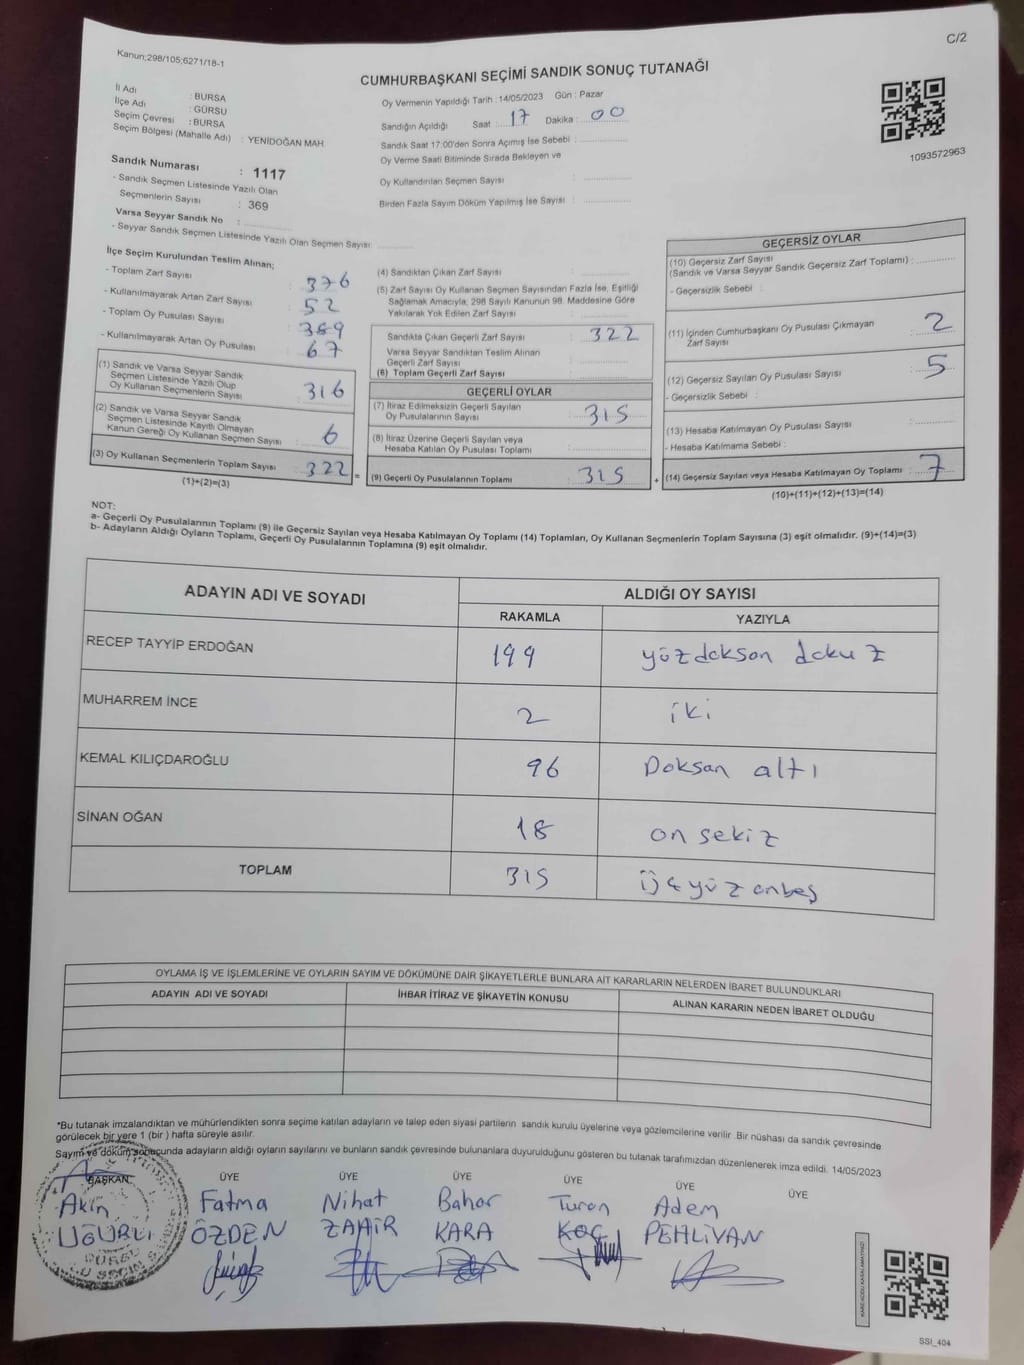 C/2
Kanun;298/105;6271/18-1
CUMHURBAŞKANI SEÇİMİ SANDIK SONUÇ TUTANAĞI
İl Adı : BURSA
İlçe Adı : GÜRSU
Seçim Çevresi : BURSA
Seçim Bölgesi (Mahalle Adı) : YENİDOĞAN MAH
Sandık Numarası : 1117
- Sandık Seçmen Listesinde Yazılı Olan
Seçmenlerin Sayısı : 369
Varsa Seyyar Sandık No :
- Seyyar Sandık Seçmen Listesinde Yazılı Olan Seçmen Sayısı:
Oy Vermenin Yapıldığı Tarih :14/05/2023 Gün : Pazar
Sandığın Açıldığı Saat : 17 Dakika : 00
Sandık Saat 17:00'den Sonra Açımış İse Sebebi :
Oy Verme Saati Bitiminde Sırada Bekleyen ve
Oy Kullandırılan Seçmen Sayısı :
Birden Fazla Sayım Döküm Yapılmış İse Sayısı :
1093572963
İlçe Seçim Kurulundan Teslim Alınan;
- Toplam Zarf Sayısı : 376
- Kullanılmayarak Artan Zarf Sayısı : 52
- Toplam Oy Pusulası Sayısı : 389
- Kullanılmayarak Artan Oy Pusulası : 67
(1) Sandık ve Varsa Seyyar Sandık
Seçmen Listesinde Yazılı Olup
Oy Kullanan Seçmenlerin Sayısı : 316
(2) Sandık ve Varsa Seyyar Sandık
Seçmen Listesinde Kayıtlı Olmayan
Kanun Gereği Oy Kullanan Seçmen Sayısı : 6
(3) Oy Kullanan Seçmenlerin Toplam Sayısı : 322
(1)+(2)=(3)
(4) Sandıktan Çıkan Zarf Sayısı :
(5) Zarf Sayısı Oy Kullanan Seçmen Sayısından Fazla İse, Eşitliği
Sağlamak Amacıyla, 298 Sayılı Kanunun 98. Maddesine Göre
Yakılarak Yok Edilen Zarf Sayısı :
Sandıkta Çıkan Geçerli Zarf Sayısı : 322
Varsa Seyyar Sandıktan Teslim Alınan
Geçerli Zarf Sayısı :
(6) Toplam Geçerli Zarf Sayısı :
GEÇERLİ OYLAR
(7) İtiraz Edilmeksizin Geçerli Sayılan
Oy Pusulalarının Sayısı : 315
(8) İtiraz Üzerine Geçerli Sayılan veya
Hesaba Katılan Oy Pusulası Toplamı :
= (9) Geçerli Oy Pusulalarının Toplamı : 315
GEÇERSİZ OYLAR
(10) Geçersiz Zarf Sayısı
(Sandık ve Varsa Seyyar Sandık Geçersiz Zarf Toplamı) :
- Geçersizlik Sebebi :
(11) İçinden Cumhurbaşkanı Oy Pusulası Çıkmayan
Zarf Sayısı : 2
(12) Geçersiz Sayılan Oy Pusulası Sayısı : 5
- Geçersizlik Sebebi :
(13) Hesaba Katılmayan Oy Pusulası Sayısı :
- Hesaba Katılmama Sebebi :
+ (14) Geçersiz Sayılan veya Hesaba Katılmayan Oy Toplamı : 7
(10)+(11)+(12)+(13)=(14)
NOT:
a- Geçerli Oy Pusulalarının Toplamı (9) ile Geçersiz Sayılan veya Hesaba Katılmayan Oy Toplamı (14) Toplamları, Oy Kullanan Seçmenlerin Toplam Sayısına (3) eşit olmalıdır. (9)+(14)=(3)
b- Adayların Aldığı Oyların Toplamı, Geçerli Oy Pusulalarının Toplamına (9) eşit olmalıdır.
ADAYIN ADI VE SOYADI ALDIĞI OY SAYISI
RAKAMLA YAZIYLA
RECEP TAYYİP ERDOĞAN 199 yüzdokson dokuz
MUHARREM İNCE 2 iki
KEMAL KILIÇDAROĞLU 96 Doksan altı
SİNAN OĞAN 18 on sekiz
TOPLAM 315 üçyüz onbeş
OYLAMA İŞ VE İŞLEMLERİNE VE OYLARIN SAYIM VE DÖKÜMÜNE DAİR ŞİKAYETLERLE BUNLARA AİT KARARLARIN NELERDEN İBARET BULUNDUKLARI
ADAYIN ADI VE SOYADI İHBAR İTİRAZ VE ŞİKAYETİN KONUSU ALINAN KARARIN NEDEN İBARET OLDUĞU
*Bu tutanak imzalandıktan ve mühürlendikten sonra seçime katılan adayların ve talep eden siyasi partilerin sandık kurulu üyelerine veya gözlemcilerine verilir .Bir nüshası da sandık çevresinde
görülecek bir yere 1 (bir ) hafta süreyle asılır.
Sayım ve döküm sonucunda adayların aldığı oyların sayılarını ve bunların sandık çevresinde bulunanlara duyurulduğunu gösteren bu tutanak tarafımızdan düzenlenerek imza edildi. 14/05/2023
BAŞKAN ÜYE ÜYE ÜYE ÜYE ÜYE ÜYE
Akın Fatma Nihat Bahar Turan Adem
UĞURLU ÖZDEN ZAHİR KARA KOÇ PEHLİVAN
SSI_404